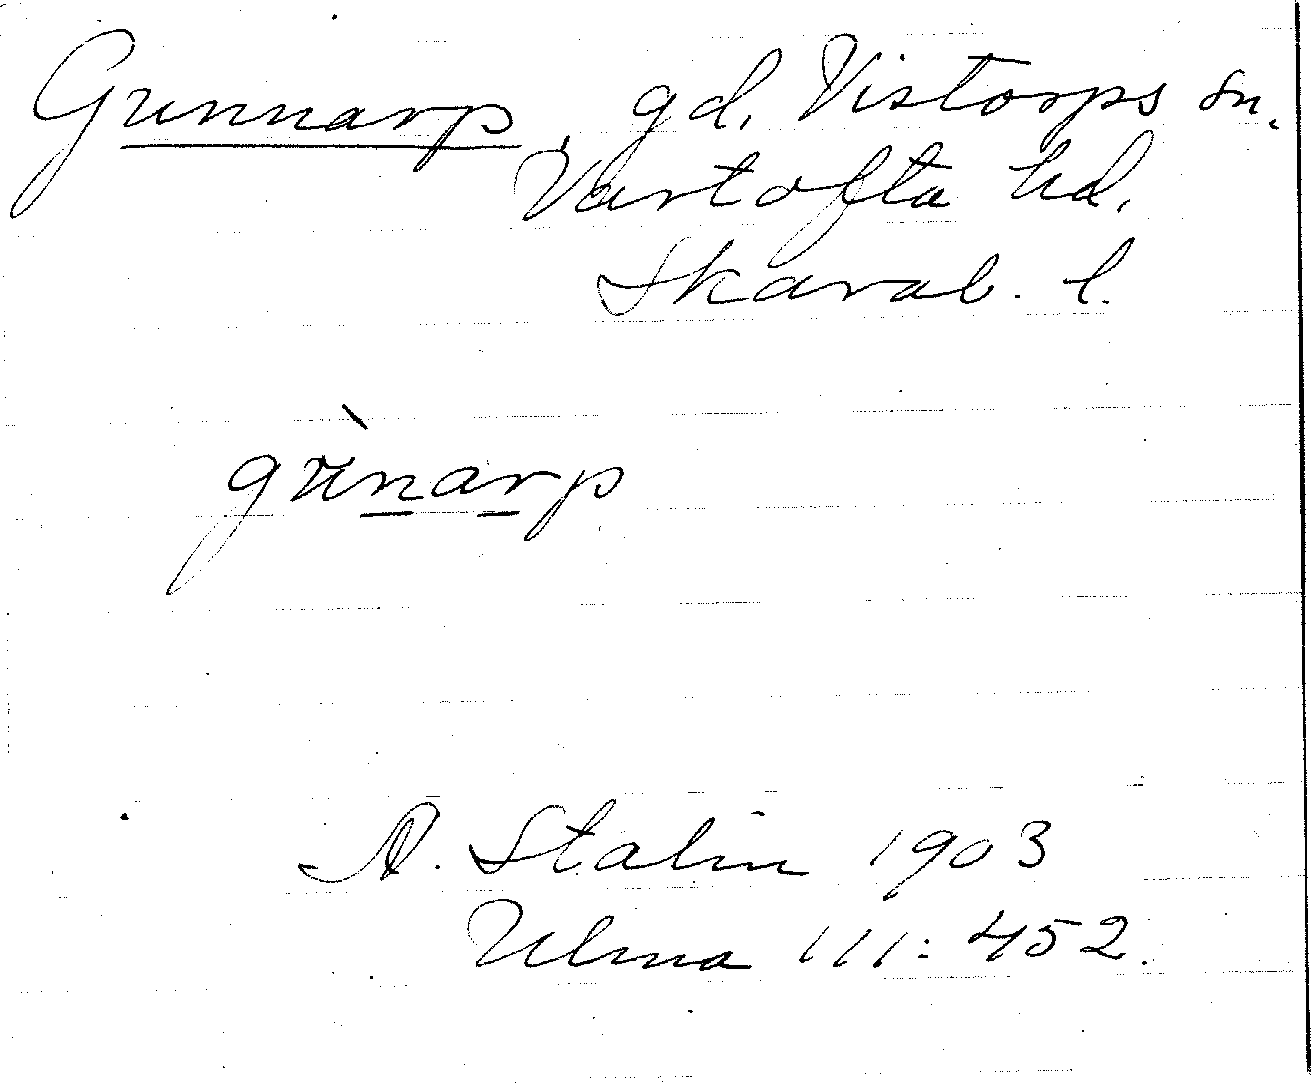 Gunnarp, gd, Vistorps sn.
Vartofta hd,
Skarab. l.
gùnarp
A. Stalin 1903
Ulma 111: 452.